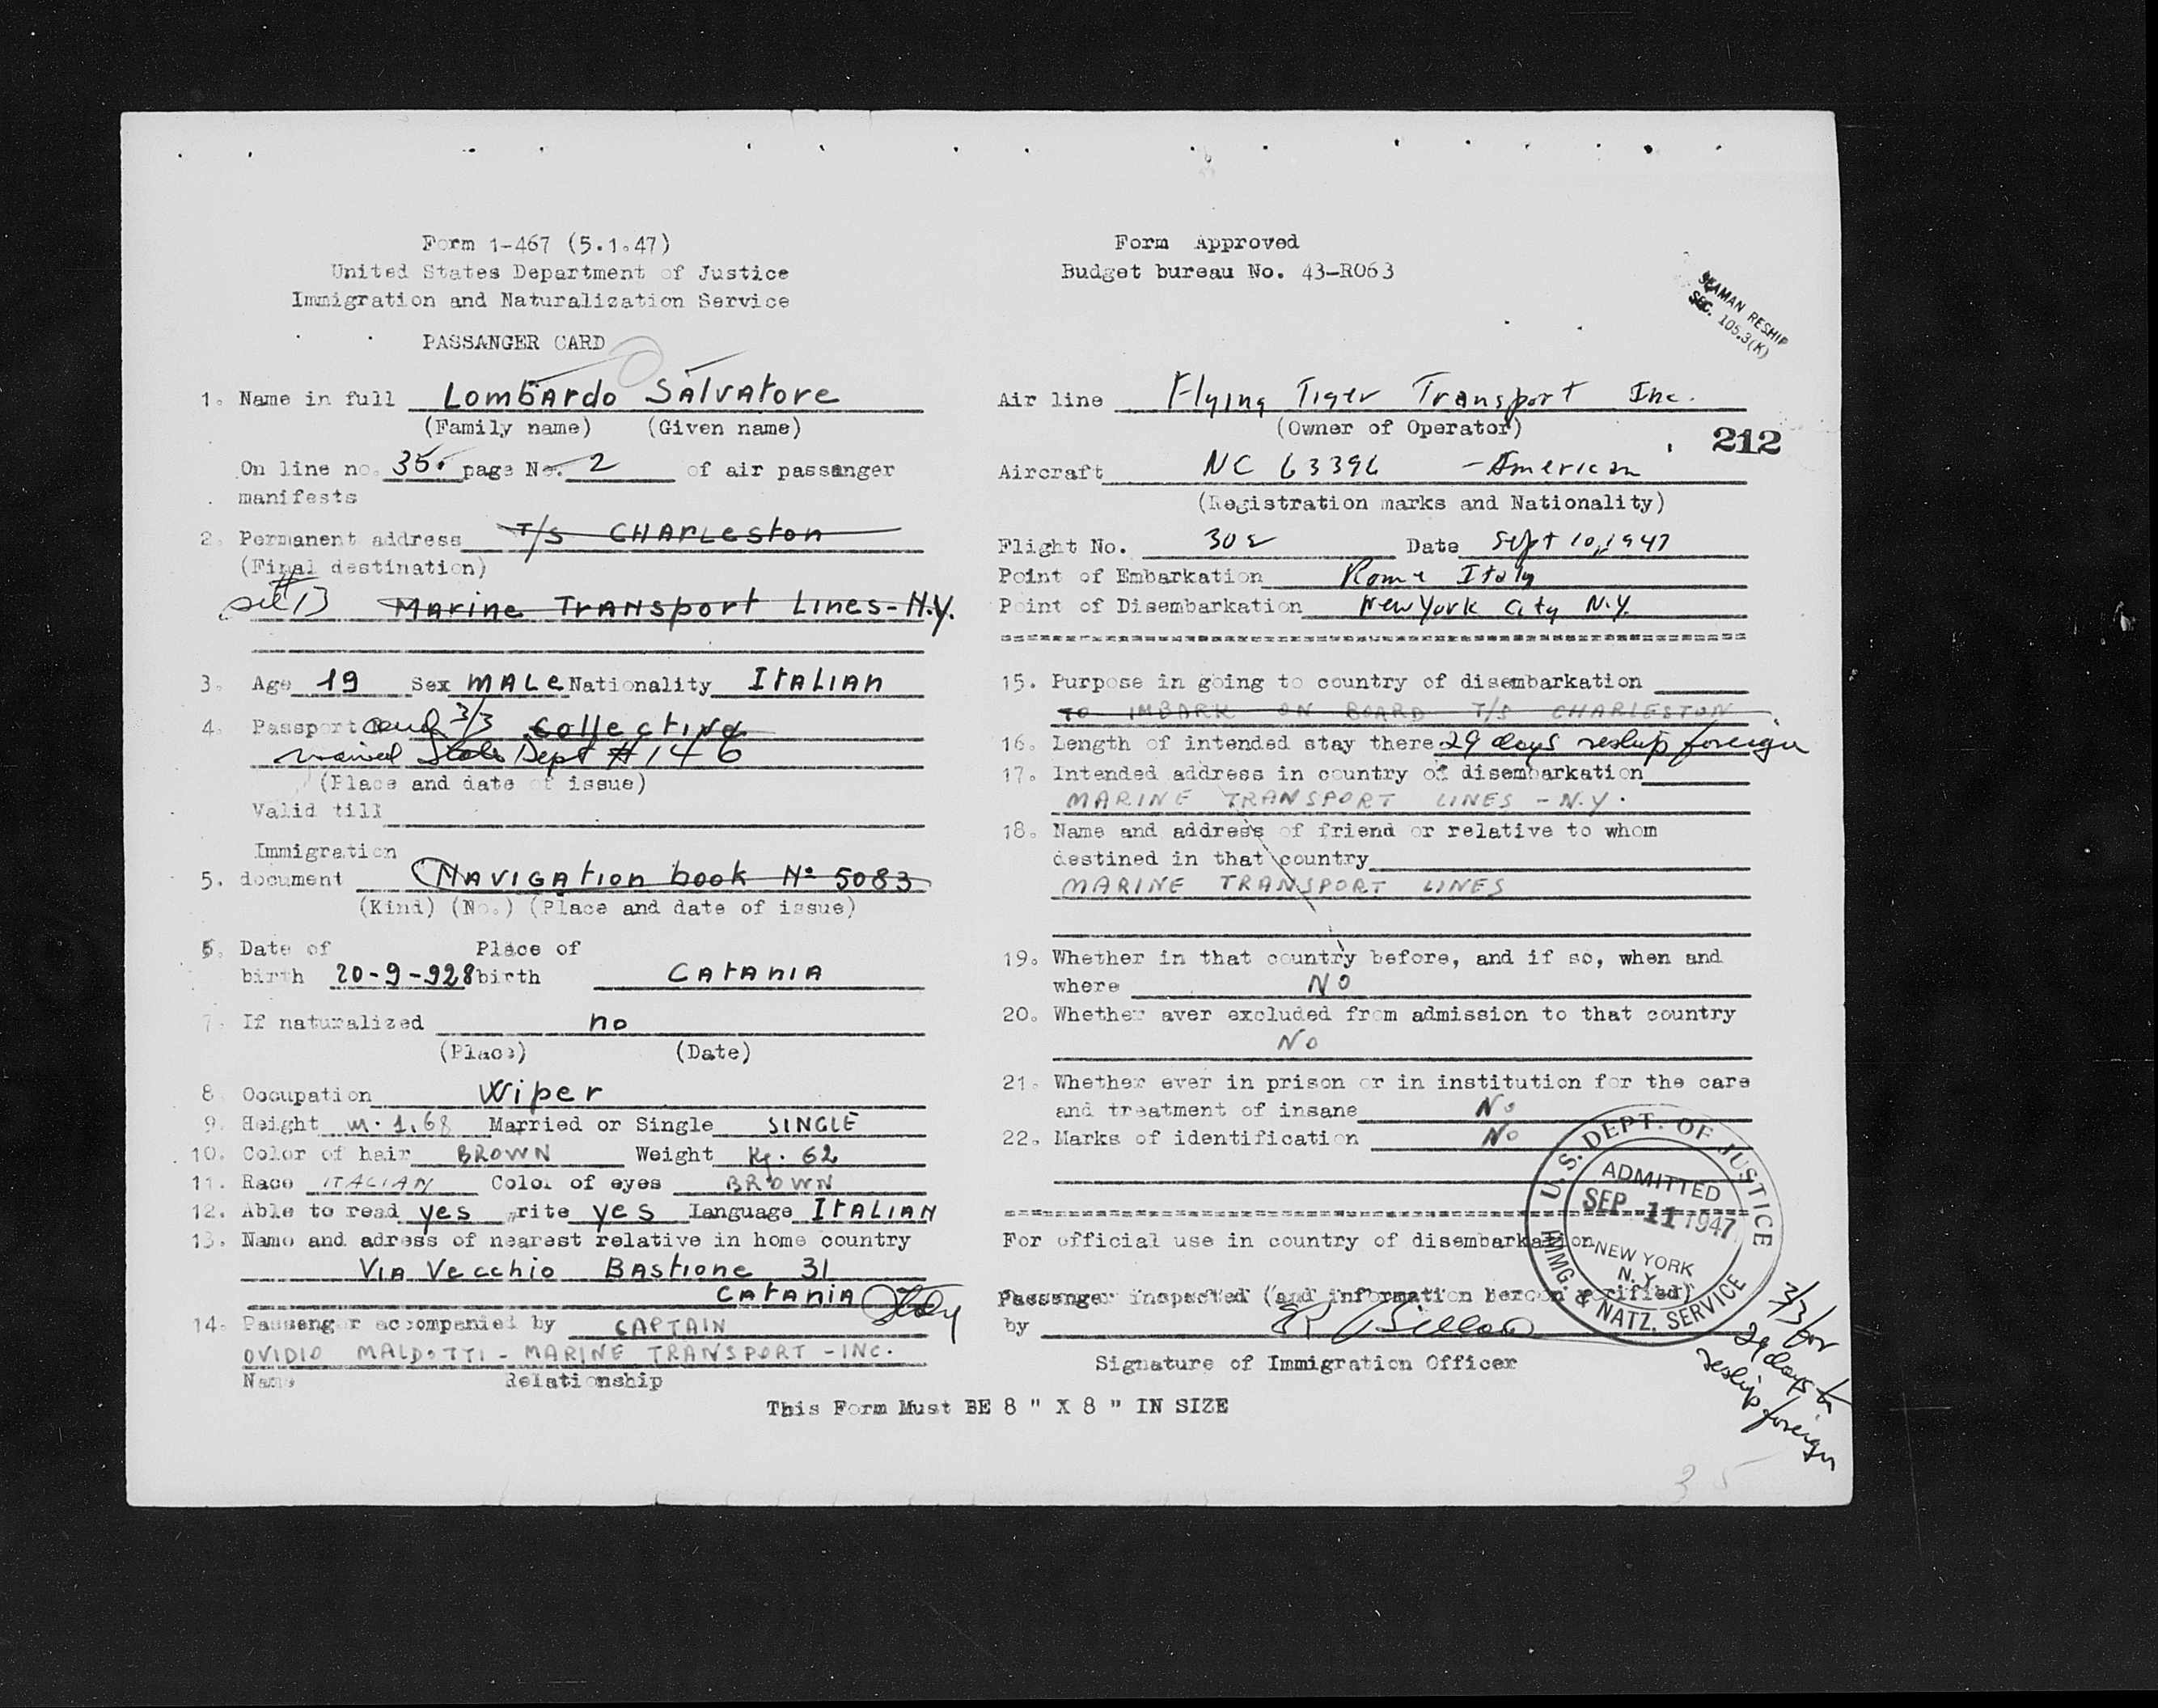 Form 1-467 (5.1.47)
United States Department of Justice
Immigration and Naturalization Service
PASSANGER CARD
1. Name in full Lombardo Salvatore
(Family name) (Given name)
On line no. 35. page No. 2 of air passanger
manifests
2. Permanent address T/S CHARLeston
(Final destination)
see #13 Marine Transport Lines-N.Y.
3. Age 19 Sex MALe Nationality ItALIAn
4. Passport 3/3 collective
waived State Dept #146
(Place and date of issue)
Valid till
Immigration
5. document NAVIGAtion book N° 5083
(Kind) (No.) (Place and date of issue)
6. Date of Place of
birth 20-9-928 birth CAtAniA
7. If naturalized no
(Place) (Date)
8. Occupation Wiper
9. Height m. 1,68 Married or Single SINGLE
10. Color of hair BROWN Weight Kg. 62
11. Race ITALIAN Color of eyes BROWN
12. Able to read yes write yes Language ItALIAN
13. Name and adress of nearest relative in home country
VIA Vecchio BAstione 31
CAtAniA Italy
14. Passenger accompanied by CAPTAIN
OVIDIO MALDOTTI - MARINE TRANSPORT - INC.
Name Relationship
Form Approved
Budget bureau No. 43-R063
SEAMAN RESHIP
SEC. 105.3(K)
Air line Flying Tiger Transport Inc.
(Owner of Operator)
212
Aircraft NC 63396 - American
(Registration marks and Nationality)
Flight No. 302 Date Sept 10, 1947
Point of Embarkation Rome Italy
Point of Disembarkation New York City N.Y.
15. Purpose in going to country of disembarkation
TO IMBARK ON BOARD T/S CHARLESTON
16. Length of intended stay there 29 days reship foreign
17. Intended address in country of disembarkation
MARINE TRANSPORT LINES - N.Y.
18. Name and address of friend or relative to whom
destined in that country
MARINE TRANSPORT LINES
19. Whether in that country before, and if so, when and
where NO
20. Whether aver excluded from admission to that country
No
21. Whether ever in prison or in institution for the care
and treatment of insane No
22. Marks of identification No
For official use in country of disembarkation
Passenger inspected (and information hereon verified)
by
Signature of Immigration Officer
U.S. DEPT. OF JUSTICE
ADMITTED
SEP 11 1947
NEW YORK
N.Y.
IMMG. & NATZ. SERVICE
3/3 for
29 days to
reship foreign
This Form Must BE 8 " X 8 " IN SIZE
35